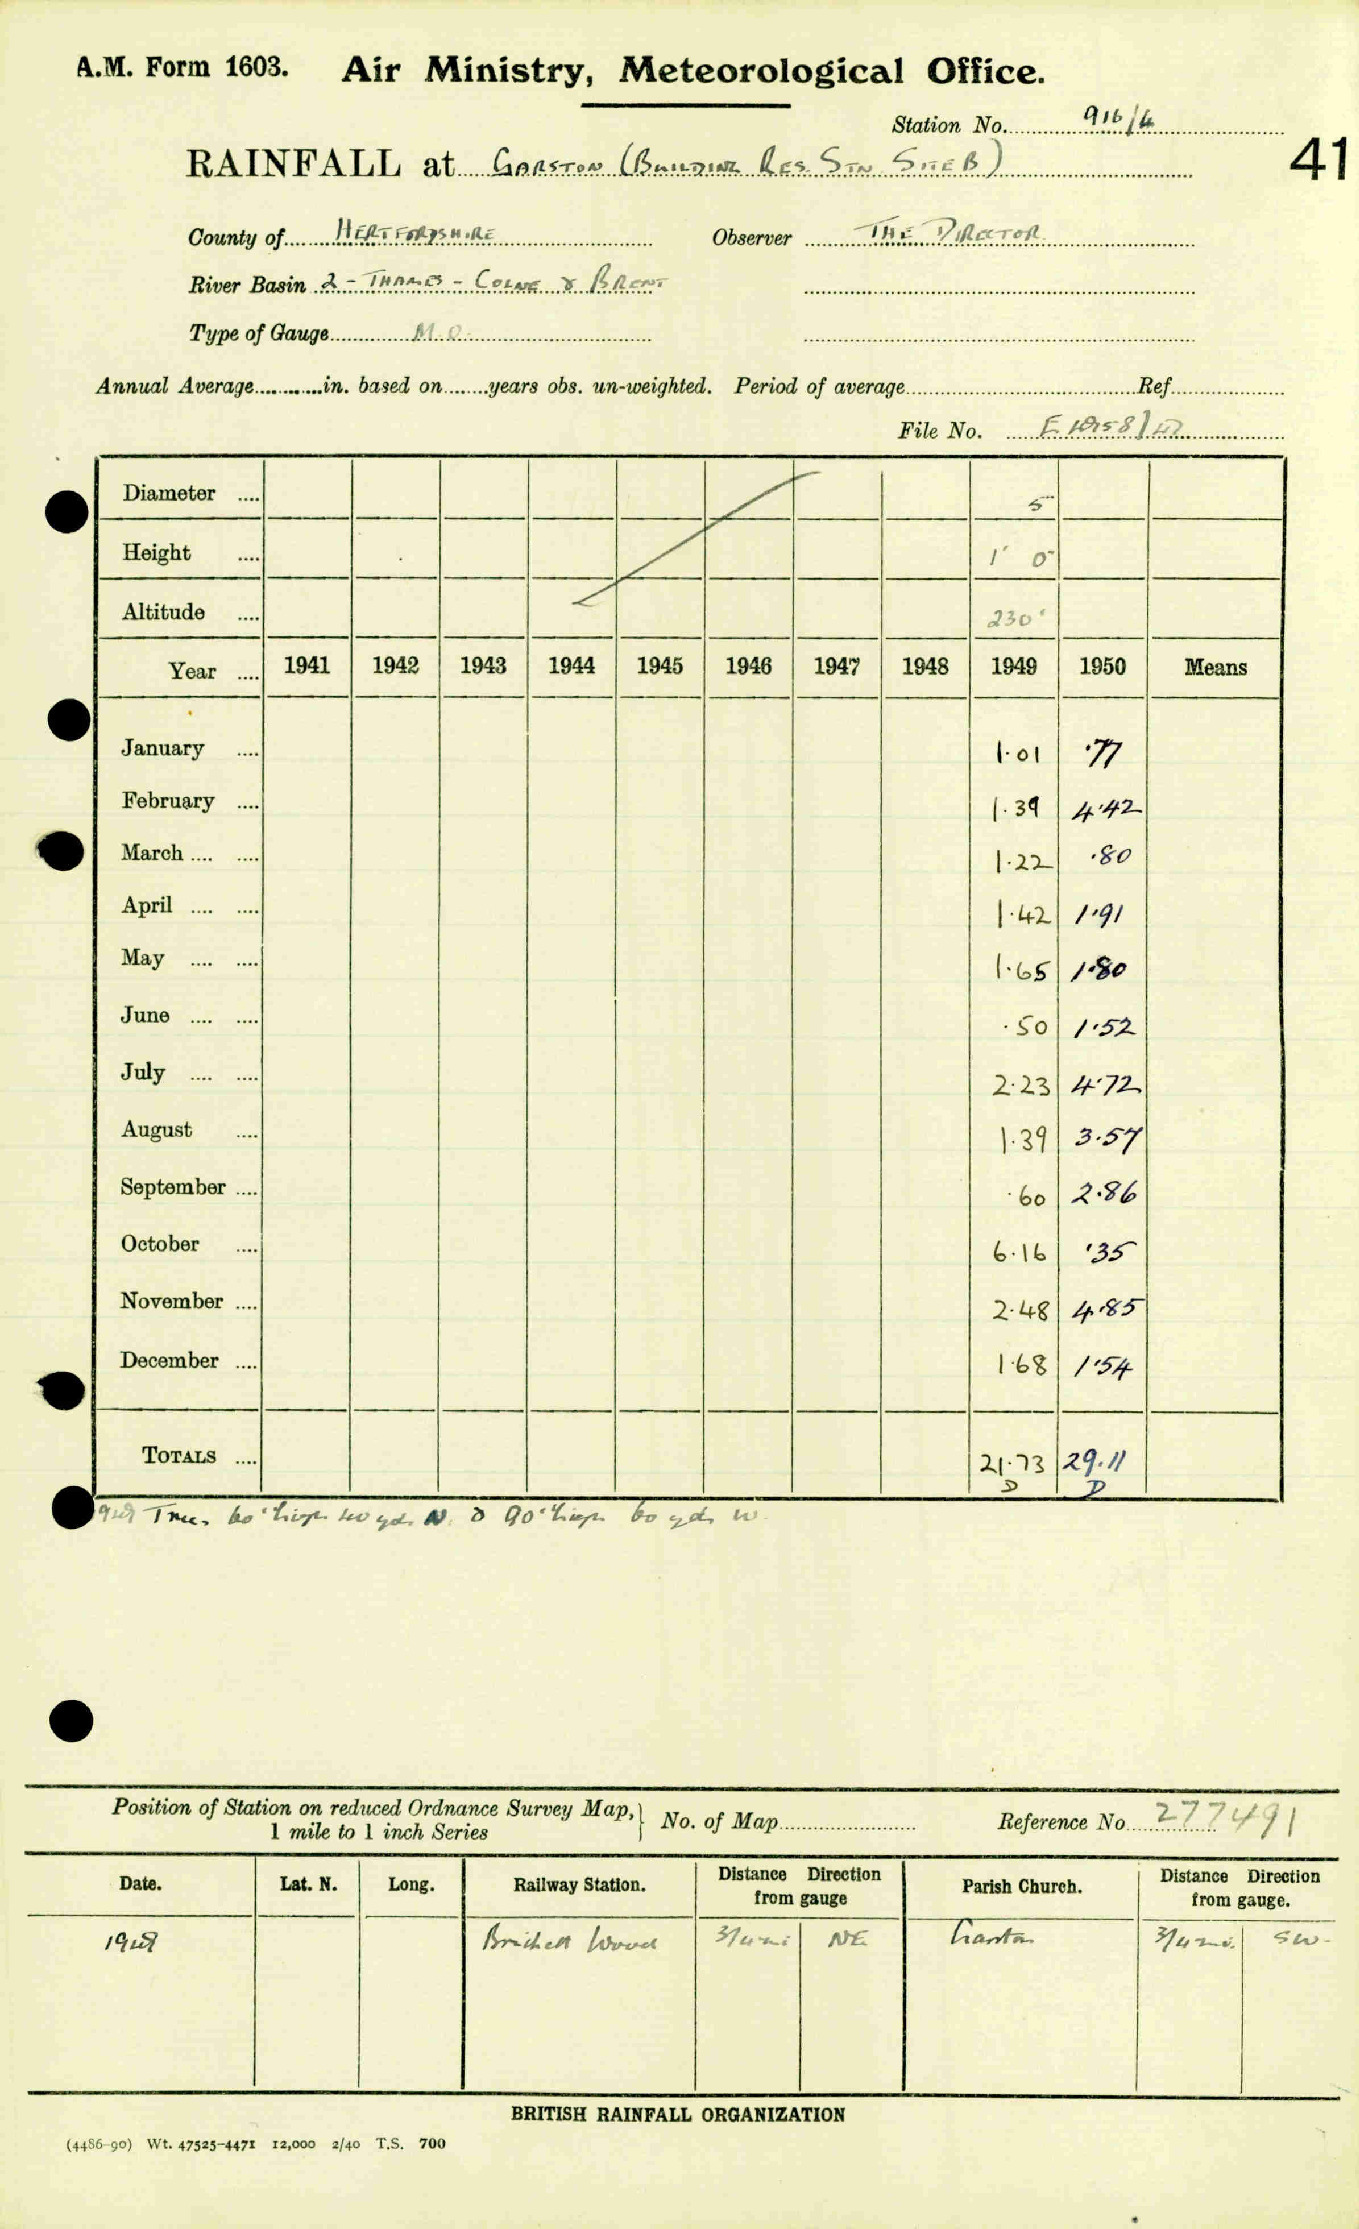 A.M. Form 1603. Air Ministry, Meteorological Office.
Station No. 916/4
41
RAINFALL at GARSTON (BUILDING RES. STN SITE B)
County of HERTFORDSHIRE Observer THE DIRECTOR
River Basin 2 - THAMES - COLNE & BRENT
Type of Gauge M.O.
Annual Average............in. based on........years obs. un-weighted. Period of average Ref.
File No.
Diameter .... 5
Height .... 1' 0
Altitude .... 230'
Year .... 1941 1942 1943 1944 1945 1946 1947 1948 1949 1950 Means
January .... 1.01 .77
February .... 1.39 4.42
March .... .... 1.22 .80
April .... .... 1.42 1.91
May .... .... 1.65 1.80
June .... .... .50 1.52
July .... .... 2.23 4.72
August .... 1.39 3.57
September .... .60 2.86
October .... 6.16 .35
November .... 2.48 4.85
December .... 1.68 1.54
TOTALS .... 21.73 29.11
D D
Trees 60' high 40 yds N. & 90' high 60 yds W.
Position of Station on reduced Ordnance Survey Map, } No. of Map Reference No. 277491
1 mile to 1 inch Series
Date. Lat. N. Long. Railway Station. Distance Direction from gauge Parish Church. Distance Direction from gauge.
Bricket Wood 3/4 mi NE Garston 3/4 mi. SW.
BRITISH RAINFALL ORGANIZATION
(4486-90) Wt. 47525-4471 12,000 2/40 T.S. 700